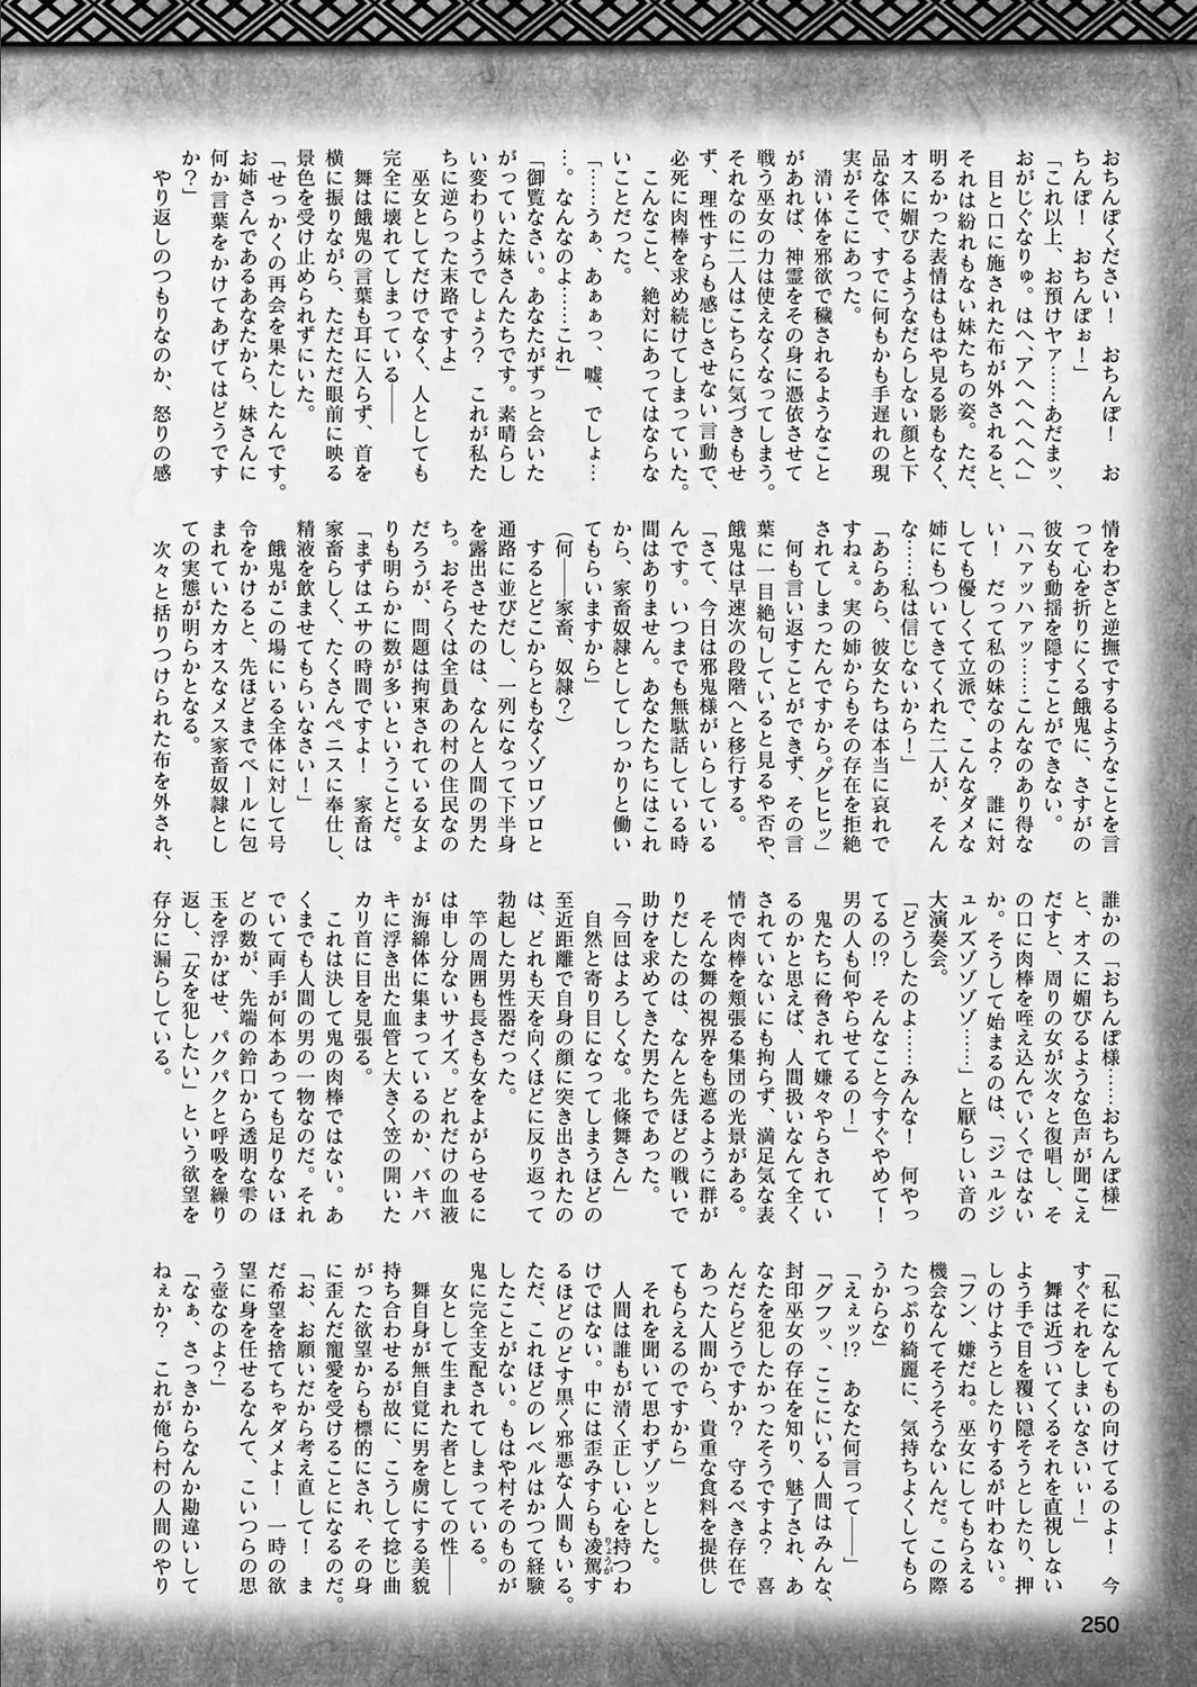 おちんぽください！　おちんぽ！　お
ちんぽ！　おちんぽぉ！」
「これ以上、お預けヤァ……あだまッ、
おがじぐなりゅ。はへ、アへへへへへ」
目と口に施された布が外されると、
それは紛れもない妹たちの姿。ただ、
明るかった表情はもはや見る影もなく、
オスに媚びるようなだらしない顔と下
品な体で、すでに何もかも手遅れの現
実がそこにあった。
清い体を邪欲で穢されるようなこと
があれば、神霊をその身に憑依させて
戦う巫女の力は使えなくなってしまう。
それなのに二人はこちらに気づきもせ
ず、理性すらも感じさせない言動で、
必死に肉棒を求め続けてしまっていた。
こんなこと、絶対にあってはならな
いことだった。
「……うぁ、あぁぁっ、嘘、でしょ…
…。なんなのよ……これ」
「御覧なさい。あなたがずっと会いた
がっていた妹さんたちです。素晴らし
い変わりようでしょう？　これが私た
ちに逆らった末路ですよ」
巫女としてだけでなく、人としても
完全に壊れてしまっている――
舞は餓鬼の言葉も耳に入らず、首を
横に振りながら、ただただ眼前に映る
景色を受け止められずにいた。
「せっかくの再会を果たしたんです。
お姉さんであるあなたから、妹さんに
何か言葉をかけてあげてはどうです
か？」
やり返しのつもりなのか、怒りの感
情をわざと逆撫でするようなことを言
って心を折りにくる餓鬼に、さすがの
彼女も動揺を隠すことができない。
「ハァッハアッ……こんなのあり得な
い！　だって私の妹なのよ？　誰に対
しても優しくて立派で、こんなダメな
姉にもついてきてくれた二人が、そん
な……私は信じないから！」
「あらあら、彼女たちは本当に哀れで
すねぇ。実の姉からもその存在を拒絶
されてしまったんですから。グヒヒッ」
何も言い返すことができず、その言
葉に一目絶句していると見るや否や、
餓鬼は早速次の段階へと移行する。
「さて、今日は邪鬼様がいらしている
んです。いつまでも無駄話している時
間はありません。あなたたちにはこれ
から、家畜奴隷としてしっかりと働い
てもらいますから」
（何――家畜、奴隷？）
するとどこからともなくゾロゾロと
通路に並びだし、一列になって下半身
を露出させたのは、なんと人間の男た
ち。おそらくは全員あの村の住民なの
だろうが、問題は拘束されている女よ
りも明らかに数が多いということだ。
「まずはエサの時間ですよ！　家畜は
家畜らしく、たくさんペニスに奉仕し、
精液を飲ませてもらいなさい！」
餓鬼がこの場にいる全体に対して号
令をかけると、先ほどまでベールに包
まれていたカオスなメス家畜奴隷とし
ての実態が明らかとなる。
次々と括りつけられた布を外され、
誰かの「おちんぽ様……おちんぽ様」
と、オスに媚びるような色声が聞こえ
だすと、周りの女が次々と復唱し、そ
の口に肉棒を咥え込んでいくではない
か。そうして始まるのは、「ジュルジ
ュルズゾゾゾゾ……」と厭らしい音の
大演奏会。
「どうしたのよ……みんな！　何やっ
てるの!?　そんなこと今すぐやめて！
男の人も何やらせてるの！」
鬼たちに脅されて嫌々やらされてい
るのかと思えば、人間扱いなんて全く
されていないにも拘らず、満足気な表
情で肉棒を頬張る集団の光景がある。
そんな舞の視界をも遮るように群が
りだしたのは、なんと先ほどの戦いで
助けを求めてきた男たちであった。
「今回はよろしくな。北條舞さん」
自然と寄り目になってしまうほどの
至近距離で自身の顔に突き出されたの
は、どれも天を向くほどに反り返って
勃起した男性器だった。
竿の周囲も長さも女をよがらせるに
は申し分ないサイズ。どれだけの血液
が海綿体に集まっているのか、バキバ
キに浮き出た血管と大きく笠の開いた
カリ首に目を見張る。
これは決して鬼の肉棒ではない。あ
くまでも人間の男の一物なのだ。それ
でいて両手が何本あっても足りないほ
どの数が、先端の鈴口から透明な雫の
玉を浮かばせ、パクパクと呼吸を繰り
返し、「女を犯したい」という欲望を
存分に漏らしている。
「私になんてもの向けてるのよ！　今
すぐそれをしまいなさいぃ！」
舞は近づいてくるそれを直視しない
よう手で目を覆い隠そうとしたり、押
しのけようとしたりするが叶わない。
「フン、嫌だね。巫女にしてもらえる
機会なんてそうそうないんだ。この際
たっぷり綺麗に、気持ちよくしてもら
うからな」
「えぇッ!?　あなた何言って――」
「グフッ、ここにいる人間はみんな、
封印巫女の存在を知り、魅了され、あ
なたを犯したかったそうですよ？　喜
んだらどうですか？　守るべき存在で
あった人間から、貴重な食料を提供し
てもらえるのですから」
それを聞いて思わずゾッとした。
人間は誰もが清く正しい心を持つわ
けではない。中には歪みすらも凌駕（りょうが）す
るほどのどす黒く邪悪な人間もいる。
ただ、これほどのレベルはかつて経験
したことがない。もはや村そのものが
鬼に完全支配されてしまっている。
女として生まれた者としての性――
舞自身が無自覚に男を虜にする美貌
持ち合わせるが故に、こうして捻じ曲
がった欲望からも標的にされ、その身
に歪んだ寵愛を受けることになるのだ。
「お、お願いだから考え直して！　ま
だ希望を捨てちゃダメよ！　一時の欲
望に身を任せるなんて、こいつらの思
う壺なのよ？」
「なぁ、さっきからなんか勘違いして
ねぇか？　これが俺ら村の人間のやり
250